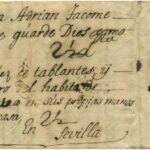 n Adrian Jacome
e guarde Dios como
2½
de tablantes y
el habito de
en sus propias manos
casa.
2½
En Sevilla